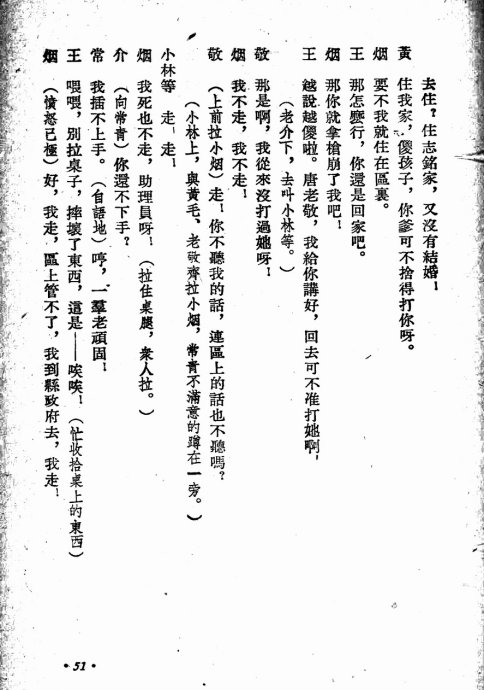 去住？住志銘家，又沒有結婚！
黃　住我家，傻孩子，你爹可不捨得打你呀。
烟　要不我就住在區裏。
王　那怎麽行，你還是回家吧。
烟　那你就拿槍崩了我吧！
王　越說越傻啦。唐老敬，我給你講好，回去可不准打她啊！
（老介下，去叫小林等。）
敬　那是啊，我從來沒打過她呀！
烟　我不走，我不走！
敬　（上前拉小烟）走！你不聽我的話，連區上的話也不聽嗎？
（小林上，與黃毛、老敬齊拉小烟，常青不滿意的蹲在一旁。）
小林等　走！走！
烟　我死也不走，助理員呀！（拉住桌腿，衆人拉。）
介　（向常青）你還不下手？
常　我插不上手。（自語地）哼，一羣老頑固！
王　喂喂，別拉桌子，摔壞了東西，這是——唉唉！（忙收拾桌上的東西）
烟　（憤怒已極）好，我走，區上管不了，我到縣政府去，我走！
·51·